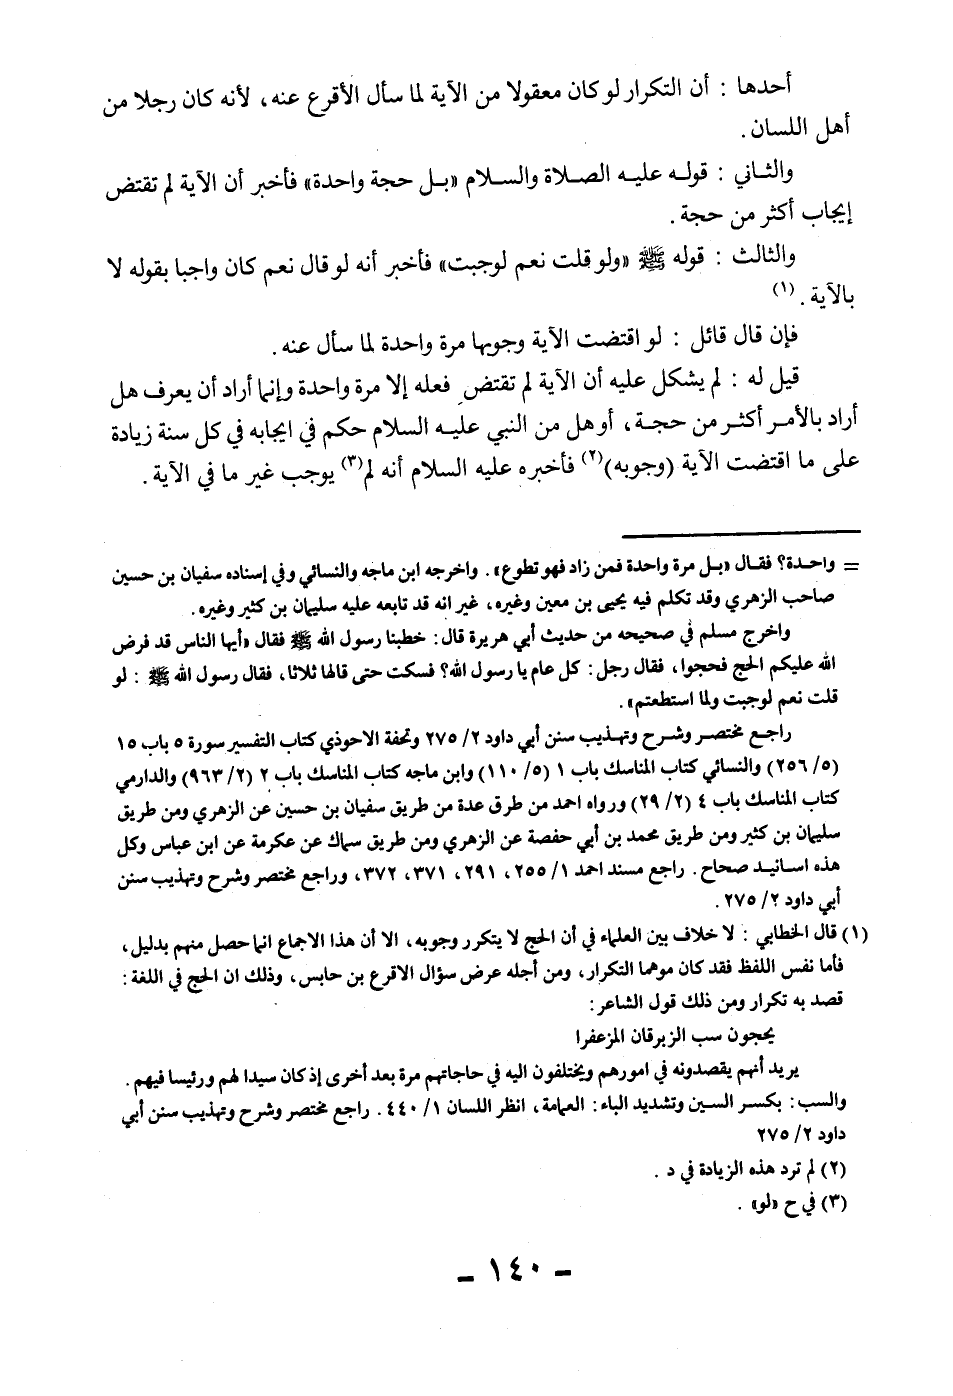 أحدها : أن التكرار لو كان معقولا من الآية لما سأل الأقرع عنه، لأنه كان رجلا من
أهل اللسان.
والثاني : قوله عليه الصلاة والسلام «بل حجة واحدة» فأخبر أن الآية لم تقتض
إيجاب أكثر من حجة.
والثالث : قوله ﷺ «ولو قلت نعم لوجبت» فأخبر أنه لو قال نعم كان واجبا بقوله لا
بالآية. (١)
فإن قال قائل : لو اقتضت الآية وجوبها مرة واحدة لما سأل عنه.
قيل له : لم يشكل عليه أن الآية لم تقتض فعله إلا مرة واحدة وإنما أراد أن يعرف هل
أراد بالأمر أكثر من حجة، أو هل من النبي عليه السلام حكم في ايجابه في كل سنة زيادة
على ما اقتضت الآية (وجوبه)(٢) فأخبره عليه السلام أنه لم(٣) يوجب غير ما في الآية.
= واحدة؟ فقال «بل مرة واحدة فمن زاد فهو تطوع». واخرجه ابن ماجه والنسائي وفي إسناده سفيان بن حسين
صاحب الزهري وقد تكلم فيه يحيى بن معين وغيره، غير انه قد تابعه عليه سليمان بن كثير وغيره.
واخرج مسلم في صحيحه من حديث أبي هريرة قال: خطبنا رسول الله ﷺ فقال «أيها الناس قد فرض
الله عليكم الحج فحجوا، فقال رجل: كل عام يا رسول الله؟ فسكت حتى قالها ثلاثا، فقال رسول الله ﷺ : لو
قلت نعم لوجبت ولما استطعتم».
راجع مختصر وشرح وتهذيب سنن أبي داود ٢/ ٢٧٥ وتحفة الاحوذي كتاب التفسير سورة ٥ باب ١٥
(٥/ ٢٥٦) والنسائي كتاب المناسك باب ١ (٥/ ١١٠) وابن ماجه كتاب المناسك باب ٢ (٢/ ٩٦٣) والدارمي
كتاب المناسك باب ٤ (٢/ ٢٩) ورواه احمد من طرق عدة من طريق سفيان بن حسين عن الزهري ومن طريق
سليمان بن كثير ومن طريق محمد بن أبي حفصة عن الزهري ومن طريق سماك عن عكرمة عن ابن عباس وكل
هذه اسانيد صحاح. راجع مسند احمد ١/ ٢٥٥، ٢٩١، ٣٧١، ٣٧٢، وراجع مختصر وشرح وتهذيب سنن
أبي داود ٢/ ٢٧٥.
(١) قال الخطابي : لا خلاف بين العلماء في أن الحج لا يتكرر وجوبه، الا أن هذا الاجماع انما حصل منهم بدليل،
فأما نفس اللفظ فقد كان موهما التكرار، ومن أجله عرض سؤال الاقرع بن حابس، وذلك ان الحج في اللغة :
قصد به تكرار ومن ذلك قول الشاعر:
يحجون سب الزبرقان المزعفرا
يريد أنهم يقصدونه في امورهم ويختلفون اليه في حاجاتهم مرة بعد أخرى إذ كان سيدا لهم ورئيسا فيهم.
والسب : بكسر السين وتشديد الباء : العمامة، انظر اللسان ١/ ٤٤٠. راجع مختصر وشرح وتهذيب سنن أبي
داود ٢/ ٢٧٥
(٢) لم ترد هذه الزيادة في د .
(٣) في ح «لو» .
- ١٤٠ -